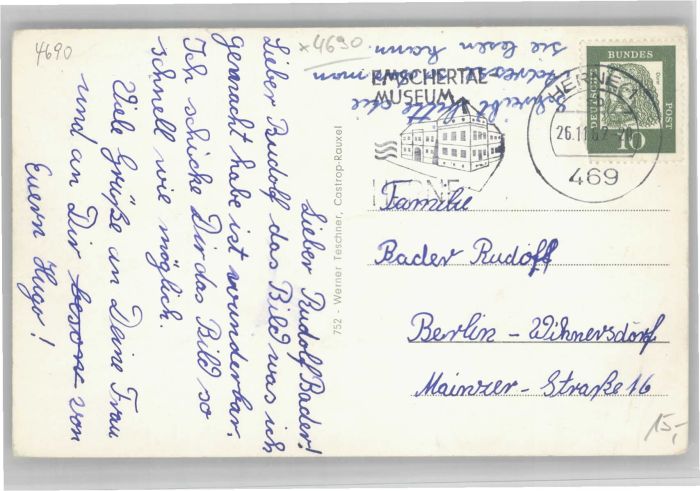 4690
x 4690
Lieber Rudolf Bader!
Lieber Rudolf das Bild was ich
gemacht habe ist wunderbar.
Ich schicke Dir das Bild so
schnell wie möglich.
Viele Grüße an Deine Frau
und an Dir besone von
Euern Hugo!
Schreibt bitte die
Adresse das man
sie lesen kann
752 - Werner Teschner, Castrop-Rauxel
EMSCHERTAL-
MUSEUM
HERNE
HERNE 1
26.11.62
469
DEUTSCHE
BUNDES
POST
10
Familie
Bader Rudolf
Berlin - Wihnersdorf
Mainzer - Straße 16
15,-